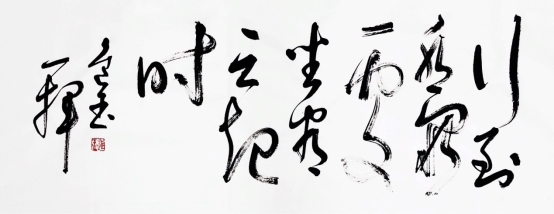 行到
水窮
處
坐看
云起
时